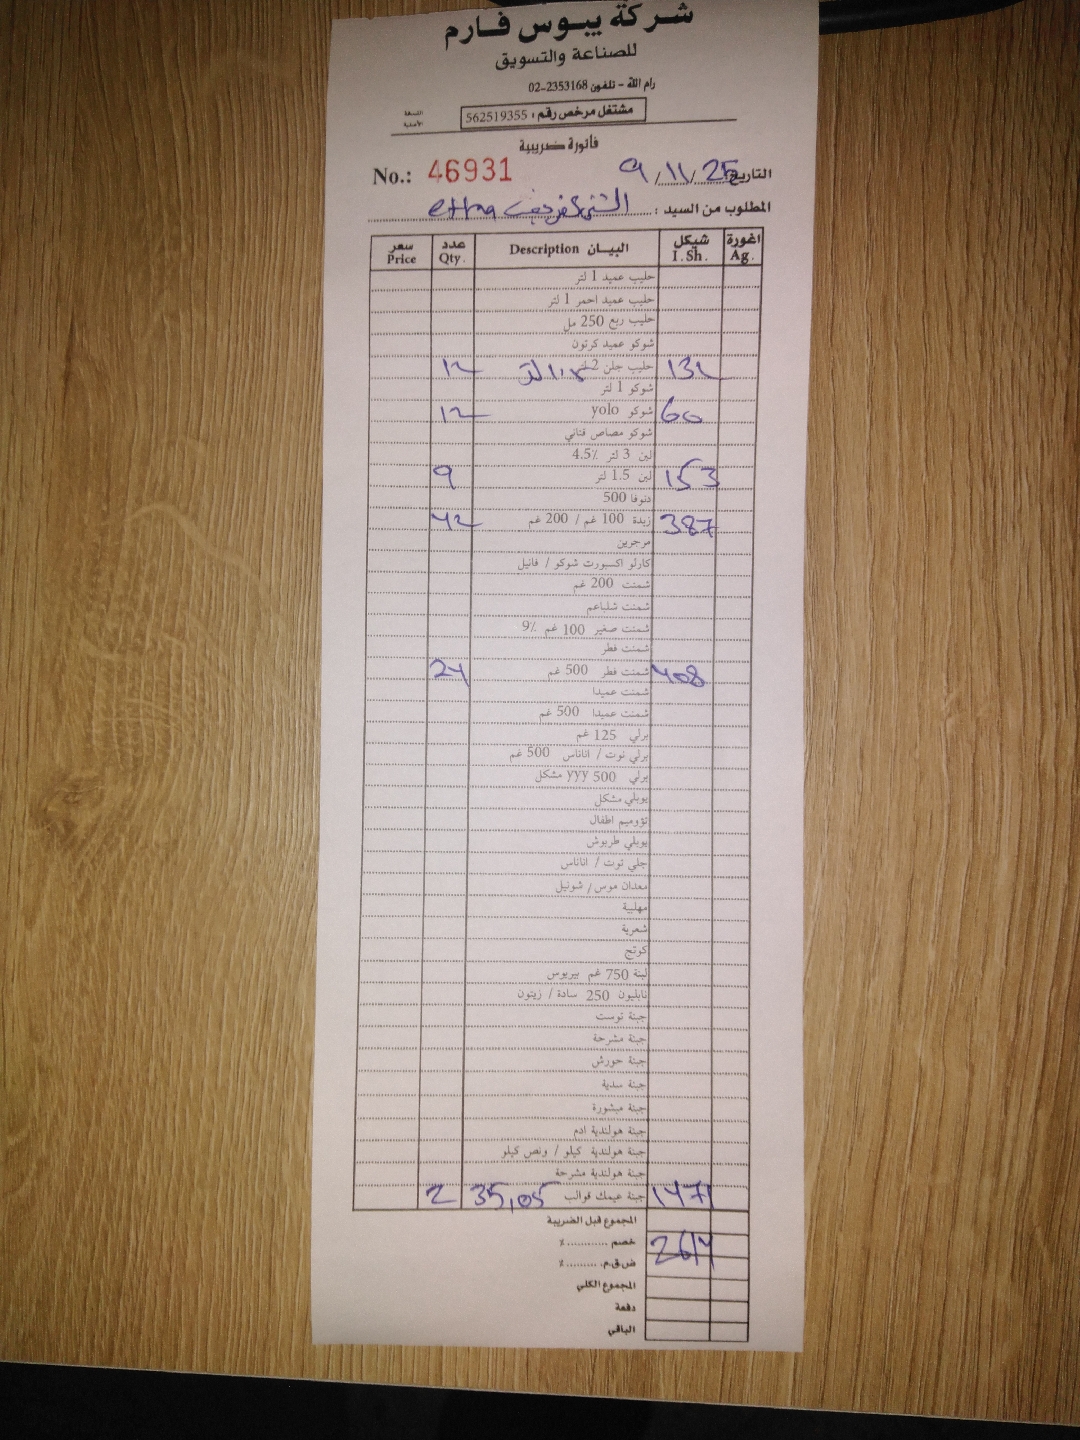 شركة يبوس فارم
للصناعة والتسويق
رام الله - تلفون 2353168-02
مشتغل مرخص رقم : 562519355
النسخة الأصلية
فاتورة ضريبية
No.: 46931 التاريخ 9/11/25
المطلوب من السيد : etna
سعر Price عدد Qty. البيان Description شيكل I.Sh. اغورة Ag.
حليب عميد 1 لتر
حليب عميد احمر 1 لتر
حليب ربع 250 مل
شوكو عميد كرتون
12 حليب جلن 2 لتر 132
شوكو 1 لتر
12 شوكو yolo 60
شوكو مصاص فتاتي
لبن 3 لتر 4.5%
9 لبن 1.5 لتر 153
دنوفا 500
42 زبدة 100 غم / 200 غم 387
مرجرين
كارلو اكسبورت شوكو / فانيل
شمنت 200 غم
شمنت شلباعم
شمنت صغير 100 غم 9%
شمنت فطر
24 شمنت فطر 500 غم 408
شمنت عميدا
شمنت عميدا 500 غم
برلي 125 غم
برلي توت / اناناس 500 غم
برلي 500 yyy مشكل
يوبلي مشكل
تؤوميم اطفال
يوبلي طربوش
جلي توت / اناناس
معدان موس / شونيل
مهلبية
شعرية
كوتج
لبنة 750 غم بيريوس
نابليون 250 سادة / زيتون
جبنة توست
جبنة مشرحة
جبنة حورش
جبنة سدية
جبنة مبشورة
جبنة هولندية ادم
جبنة هولندية كيلو / ونص كيلو
جبنة هولندية مشرحة
2 35,05 جبنة عيمك قوالب 1471
المجموع قبل الضريبة
خصم ............ %
ض.ق.م. ......... %
2614
المجموع الكلي
دفعة
الباقي